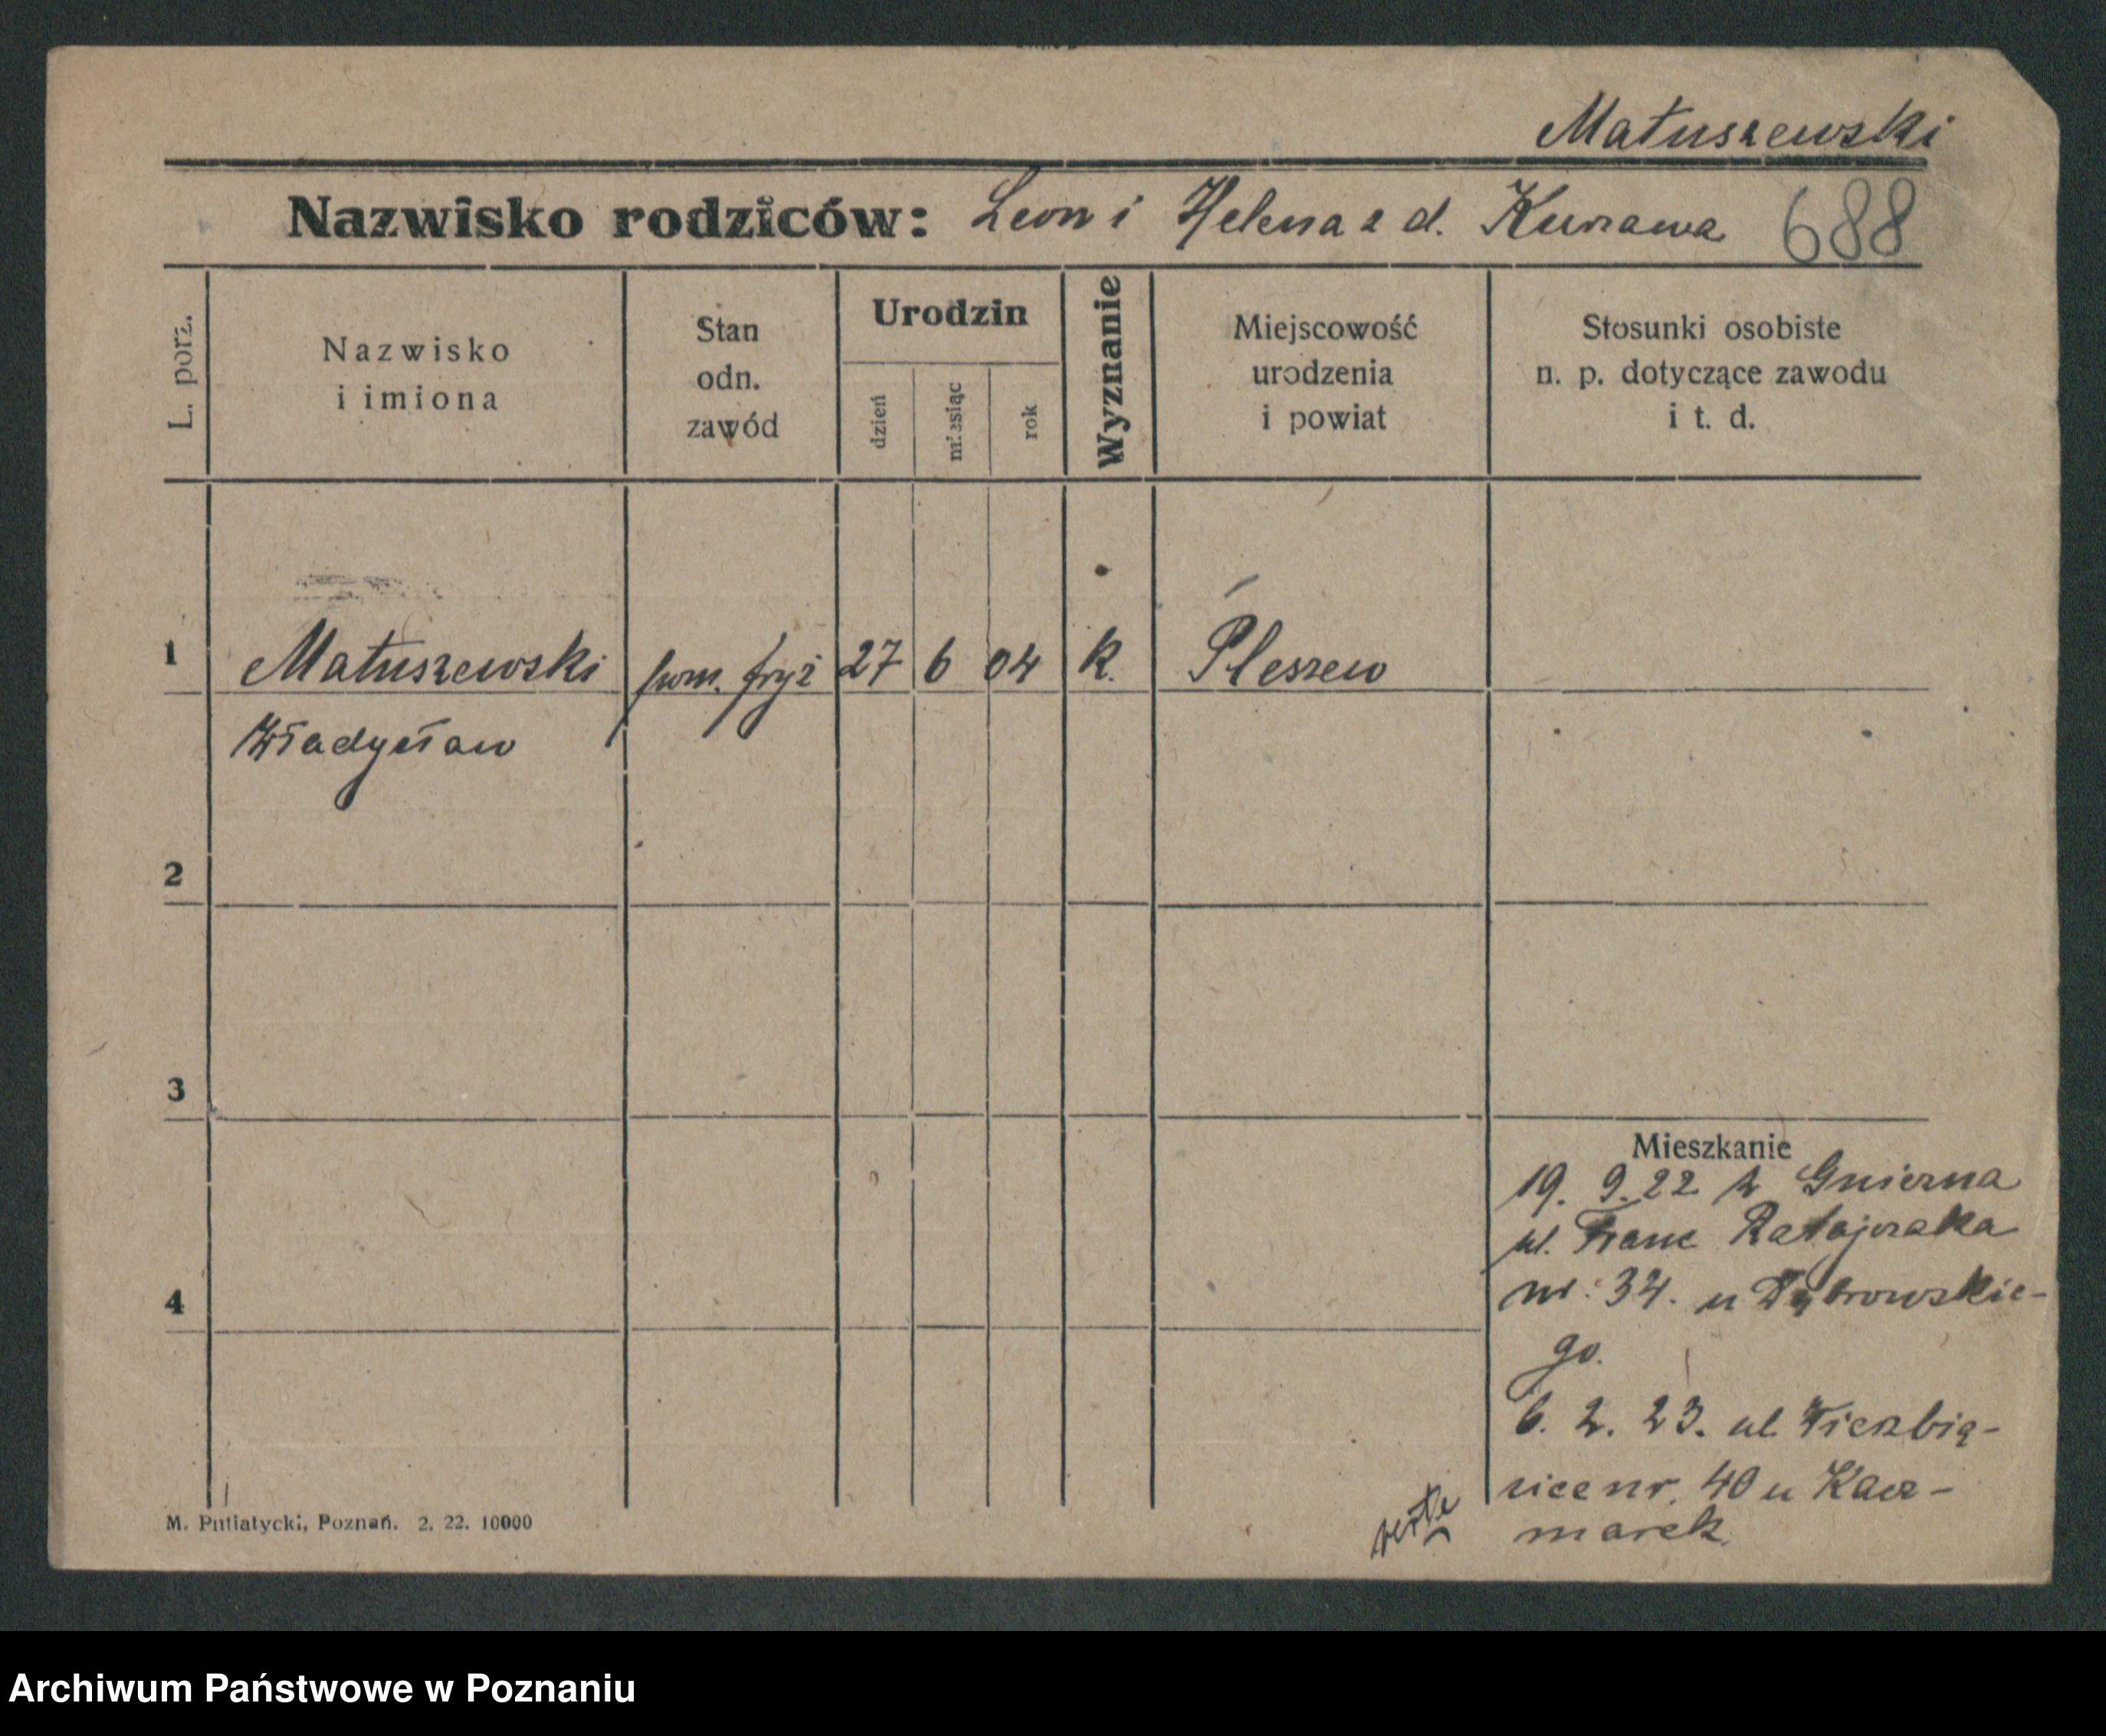 Matuszewski
Nazwisko rodziców: Leon i Helena z d. Kurzawa 688
L. porz.
Nazwisko
i imiona
Stan
odn.
zawód
Urodzin
dzień
miesiąc
rok
Wyznanie
Miejscowość
urodzenia
i powiat
Stosunki osobiste
n. p. dotyczące zawodu
i t. d.
1 Matuszewski pom. fryz 27 6 04 k. Pleszew
Władysław
2
3
4
Mieszkanie
19. 9. 22 z Gniezna
ul. Franc Ratajczaka
nr. 34. u Dąbrowskie-
go.
6. 2. 23. ul Wierzbię-
cice nr. 40 u Kacz-
marek
verte
M. Putiatycki, Poznań. 2. 22. 10000
Archiwum Państwowe w Poznaniu